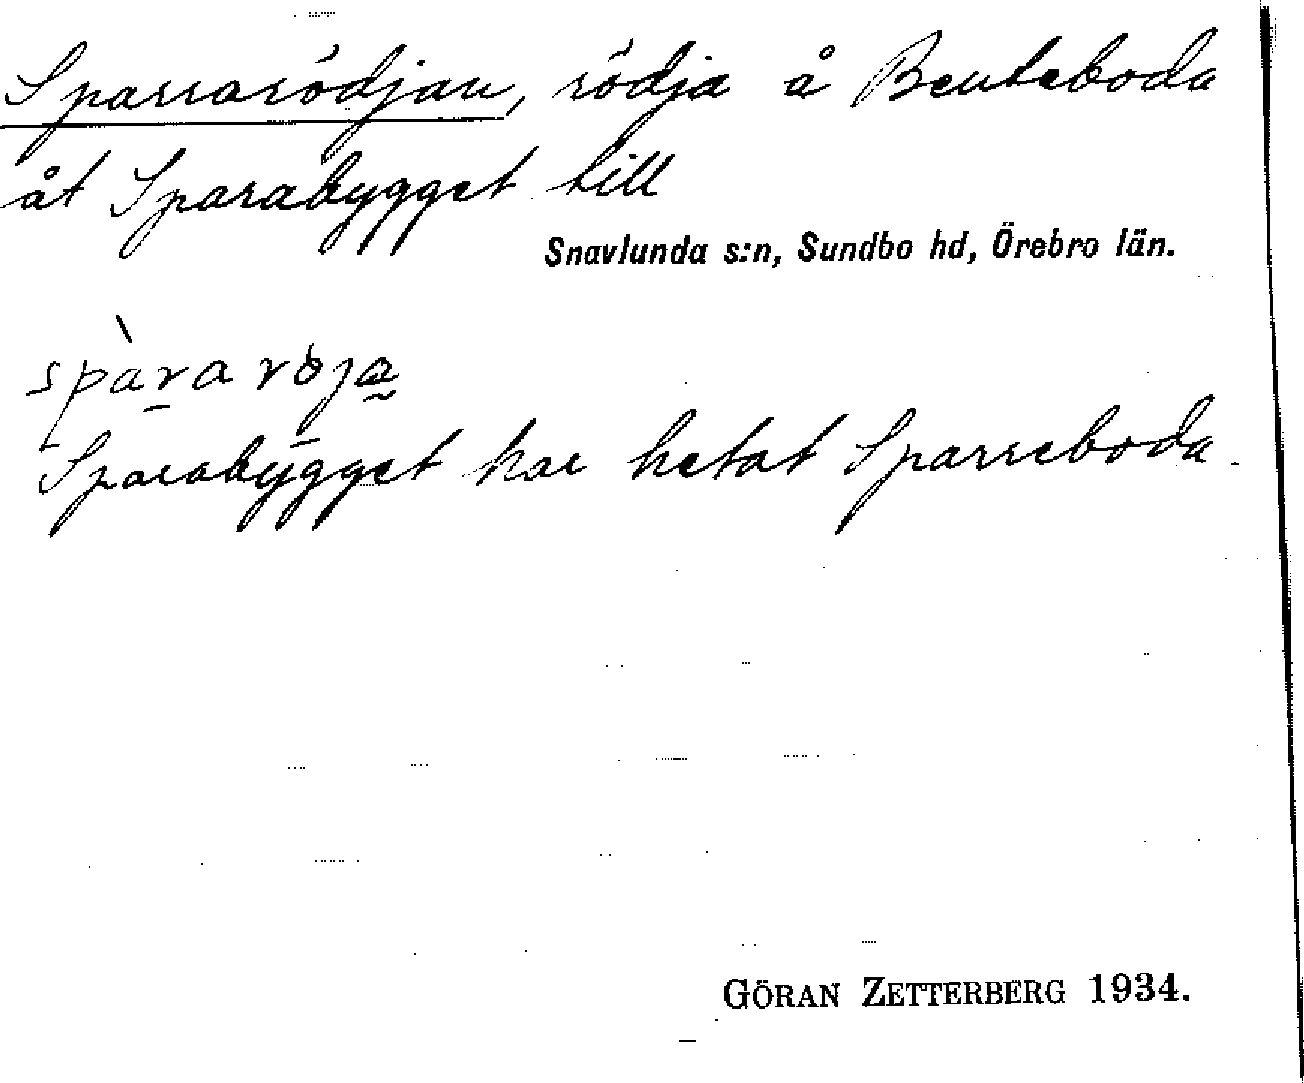 Sparrarödjan, rödja å Benteboda
åt Sparabygget till
Snavlunda s:n, Sundbo hd, Örebro län.
spàra röja
Sparabygget har hetat Sparreboda.
GÖRAN ZETTERBERG 1934.